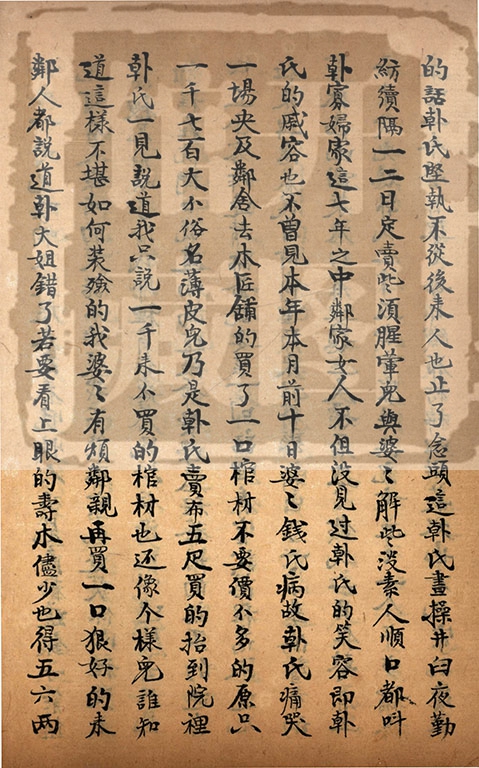 的話韓氏堅執不從後來人也止了念頭這韓氏晝操井臼夜勤
紡績隔一二日定賣些須腥葷兒與婆々解些沒素人順口都叫
韓寡婦家這七年之中鄰家女人不但沒見過韓氏的笑容即韓
氏的戚容也不曾見本年本月前十日婆々錢氏病故韓氏痛哭
一場央及鄰舍去木匠鋪的買了一口棺材不要價小多的原只
一千七百大小俗名薄皮兒乃是韓氏賣布五尺買的抬到院裡
韓氏一見說道我只說一千来小買的棺材也还像个樣兒誰知
道這樣不堪如何裝殮的我婆々有煩鄰親再買一口狠好的来
鄰人都說道韓大姐錯了若要看上眼的壽木儘少也得五六兩